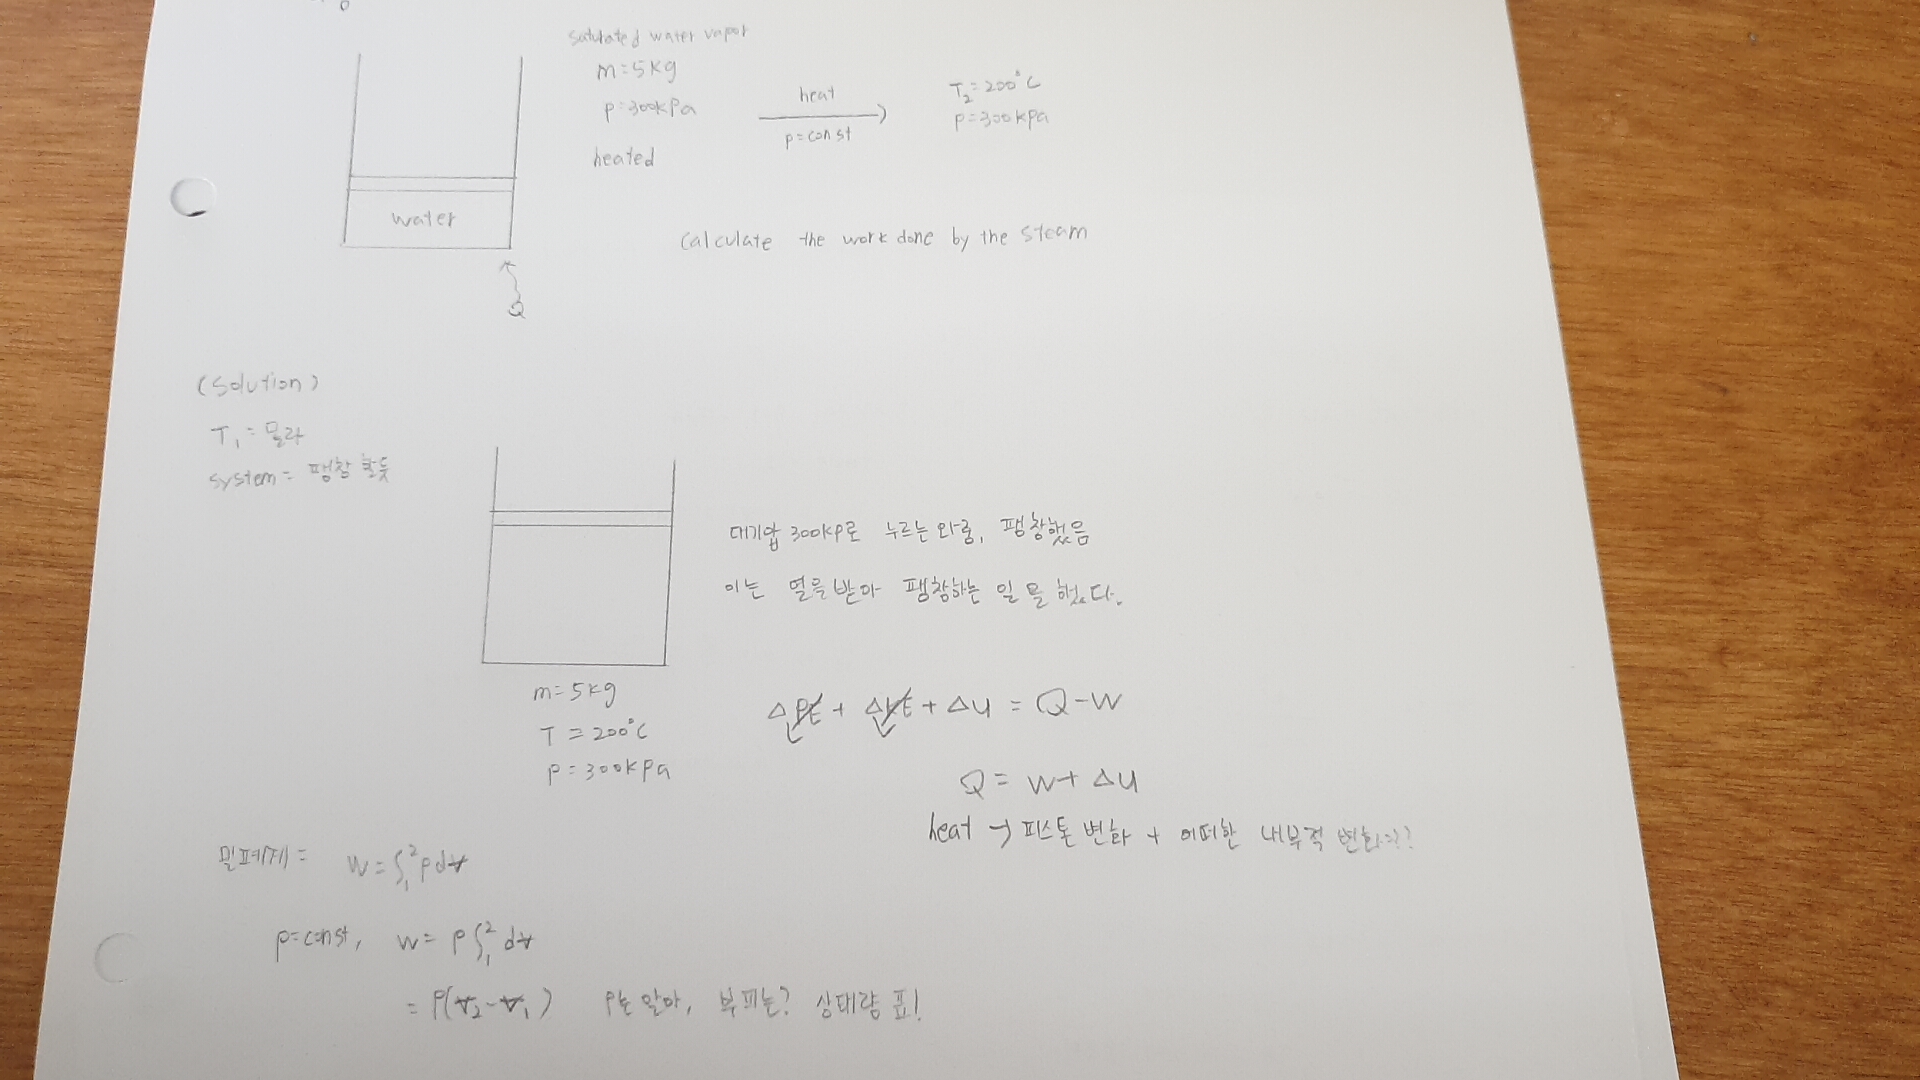 saturated water vapor
m=5kg
p=300kPa
heated
heat
p=const
T₂=200°C
p=300kpa
water
Q
Calculate the work done by the steam
(Solution)
T₁=몰라
system= 팽창 할듯
대기압 300kp로 누르는 와중, 팽창했음
이는 열을 받아 팽창하는 일을 했다.
m=5kg
T=200°C
p=300kpa
ΔPE + ΔKE + ΔU = Q-W
Q= W+ ΔU
heat → 피스톤 변화 + 어떠한 내부적 변화??
밀폐계= W=∫₁²pdV
p=const, W= P∫₁²dV
= P(V₂-V₁) P는 알아, 부피는? 상태량 표!